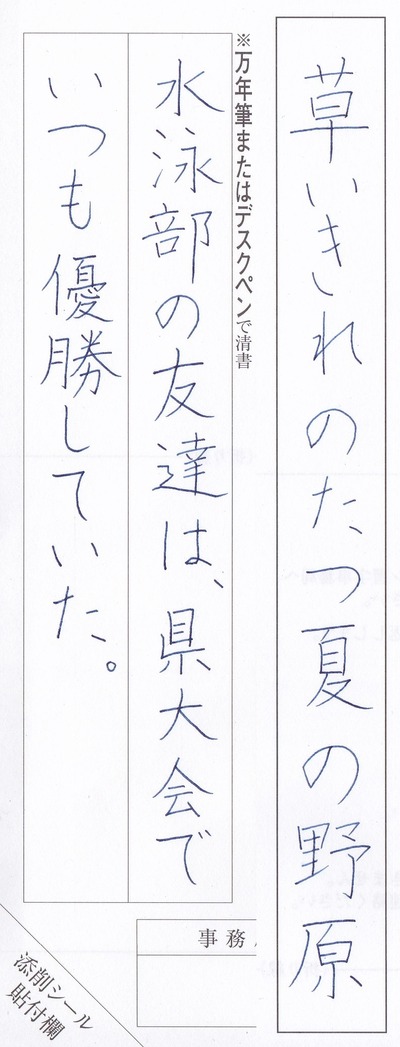 草いきれのたつ夏の野原
※万年筆またはデスクペンで清書
水泳部の友達は、県大会で
いつも優勝していた。
事務
添削シール
貼付欄